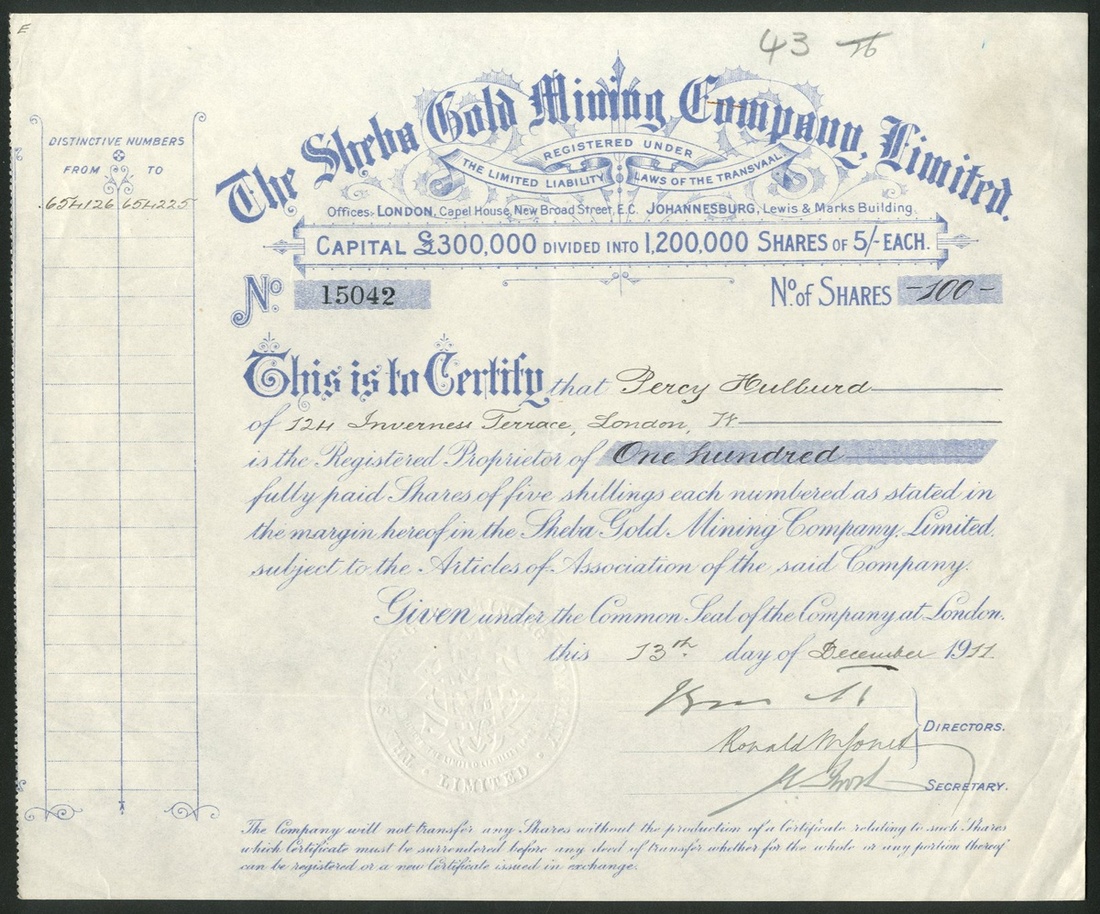 E
43
DISTINCTIVE NUMBERS
FROM TO
654126 654225
The Sheba Gold Mining Company, Limited.
REGISTERED UNDER
THE LIMITED LIABILITY LAWS OF THE TRANSVAAL
Offices:- LONDON, Capel House, New Broad Street, E.C. JOHANNESBURG, Lewis & Marks Building.
CAPITAL £300,000 DIVIDED INTO 1,200,000 SHARES OF 5/- EACH.
No. 15042
No. of SHARES -100-
This is to Certify that Percy Hulburd
of 124 Inverness Terrace, London, W
is the Registered Proprietor of One hundred
fully paid Shares of five shillings each numbered as stated in
the margin hereof in the Sheba Gold Mining Company, Limited.
subject to the Articles of Association of the said Company.
Given under the Common Seal of the Company at London.
this 13th day of December 1911
DIRECTORS.
Ronald W Jones
SECRETARY.
LIMITED
The Company will not transfer any Shares without the production of a Certificate relating to such Shares
which Certificate must be surrendered before any deed of transfer whether for the whole or any portion thereof
can be registered or a new Certificate issued in exchange.